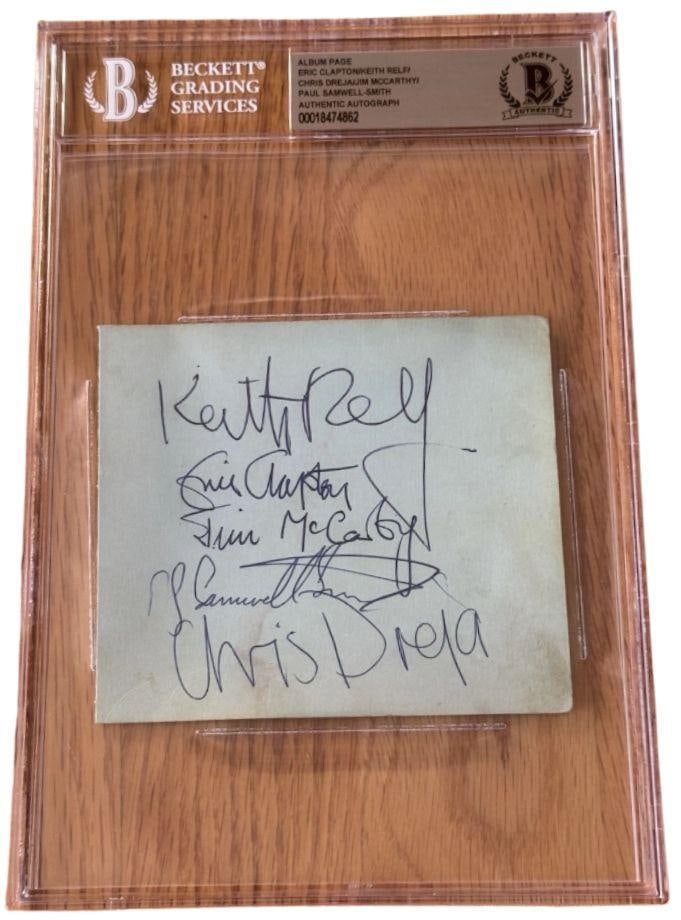 B
BECKETT®
GRADING
SERVICES
ALBUM PAGE
ERIC CLAPTON/KEITH RELF/
CHRIS DREJA/JIM MCCARTHY/
PAUL SAMWELL-SMITH
AUTHENTIC AUTOGRAPH
00018474862
BECKETT
B
AUTHENTIC
Keith Relf
Eric Clapton
Jim McCarty
P Samwell Smith
Chris Dreja